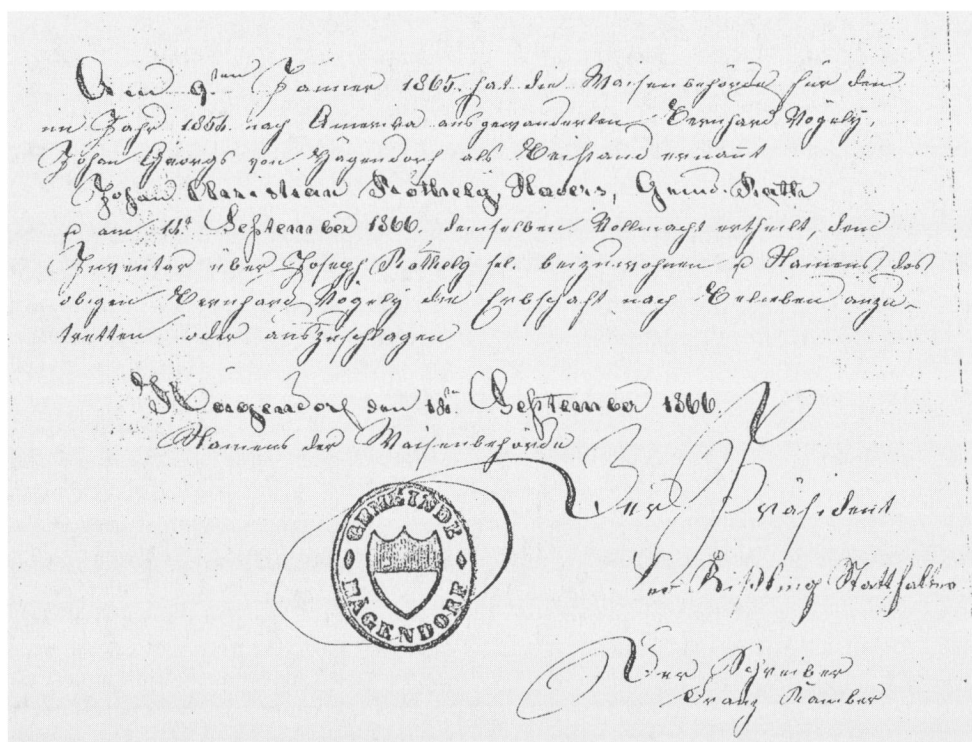 Den 9.ten Jänner 1865. hat die Waisenbehörde für den
im Jahr 1854. nach Amerika ausgewanderten Bernhard Vögely,
Johan Georgs von Hägendorf als Beistand ernañt
Johan Christian Röthely, Xavers, Gemd. Rath
u am 18t September 1866. demselben Vollmacht ertheilt, dem
Inventar über Joseph Röthely sel. beizuwohnen u Namens des
obigen Bernhard Vögely die Erbschaft nach Belieben anzu-
tretten oder auszuschlagen
Hägendorf den 18t. September 1866.
Namens der Waisenbehörde
Der Präsident
Kißling Statthalter
GEMEINDE
HÄGENDORF
Der Schreiber
Franz Kamber